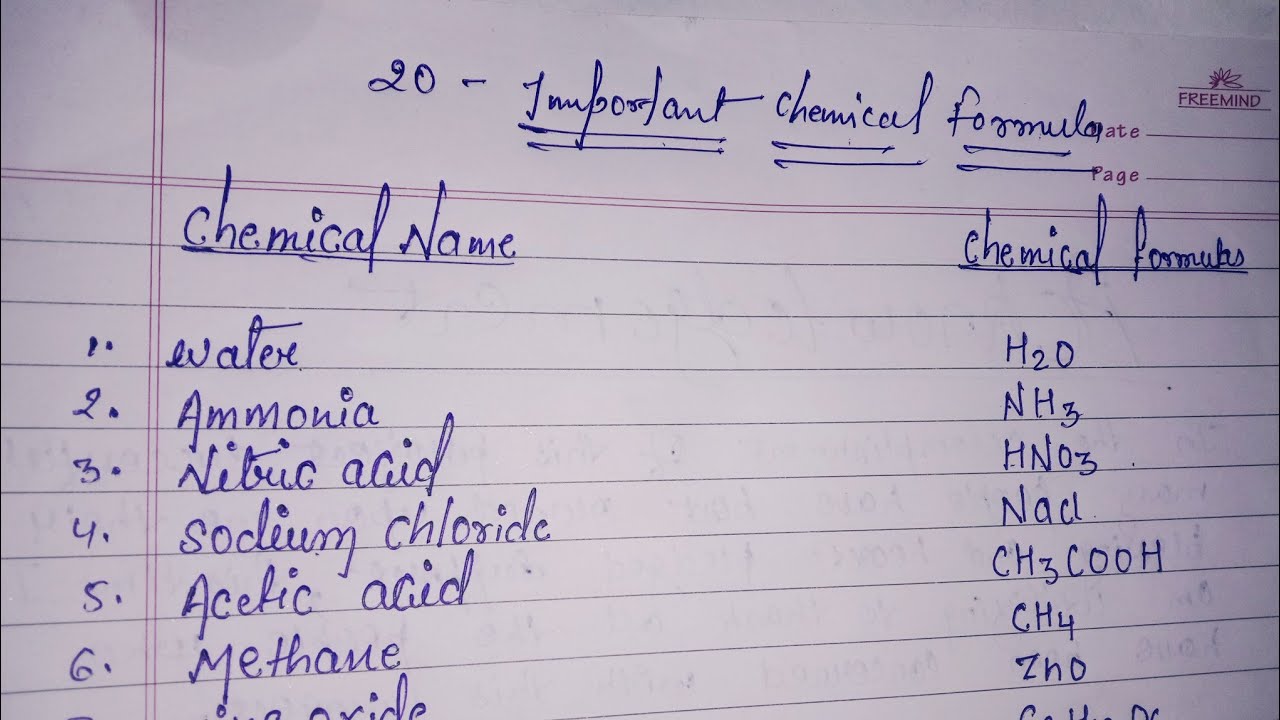 20 - Important chemical formula
FREEMIND
Date
Page
Chemical Name chemical formulas
1. water H2O
2. Ammonia NH3
3. Nitric acid HNO3
4. Sodium chloride Nacl
5. Acetic acid CH3COOH
6. Methane CH4
oxide ZnO